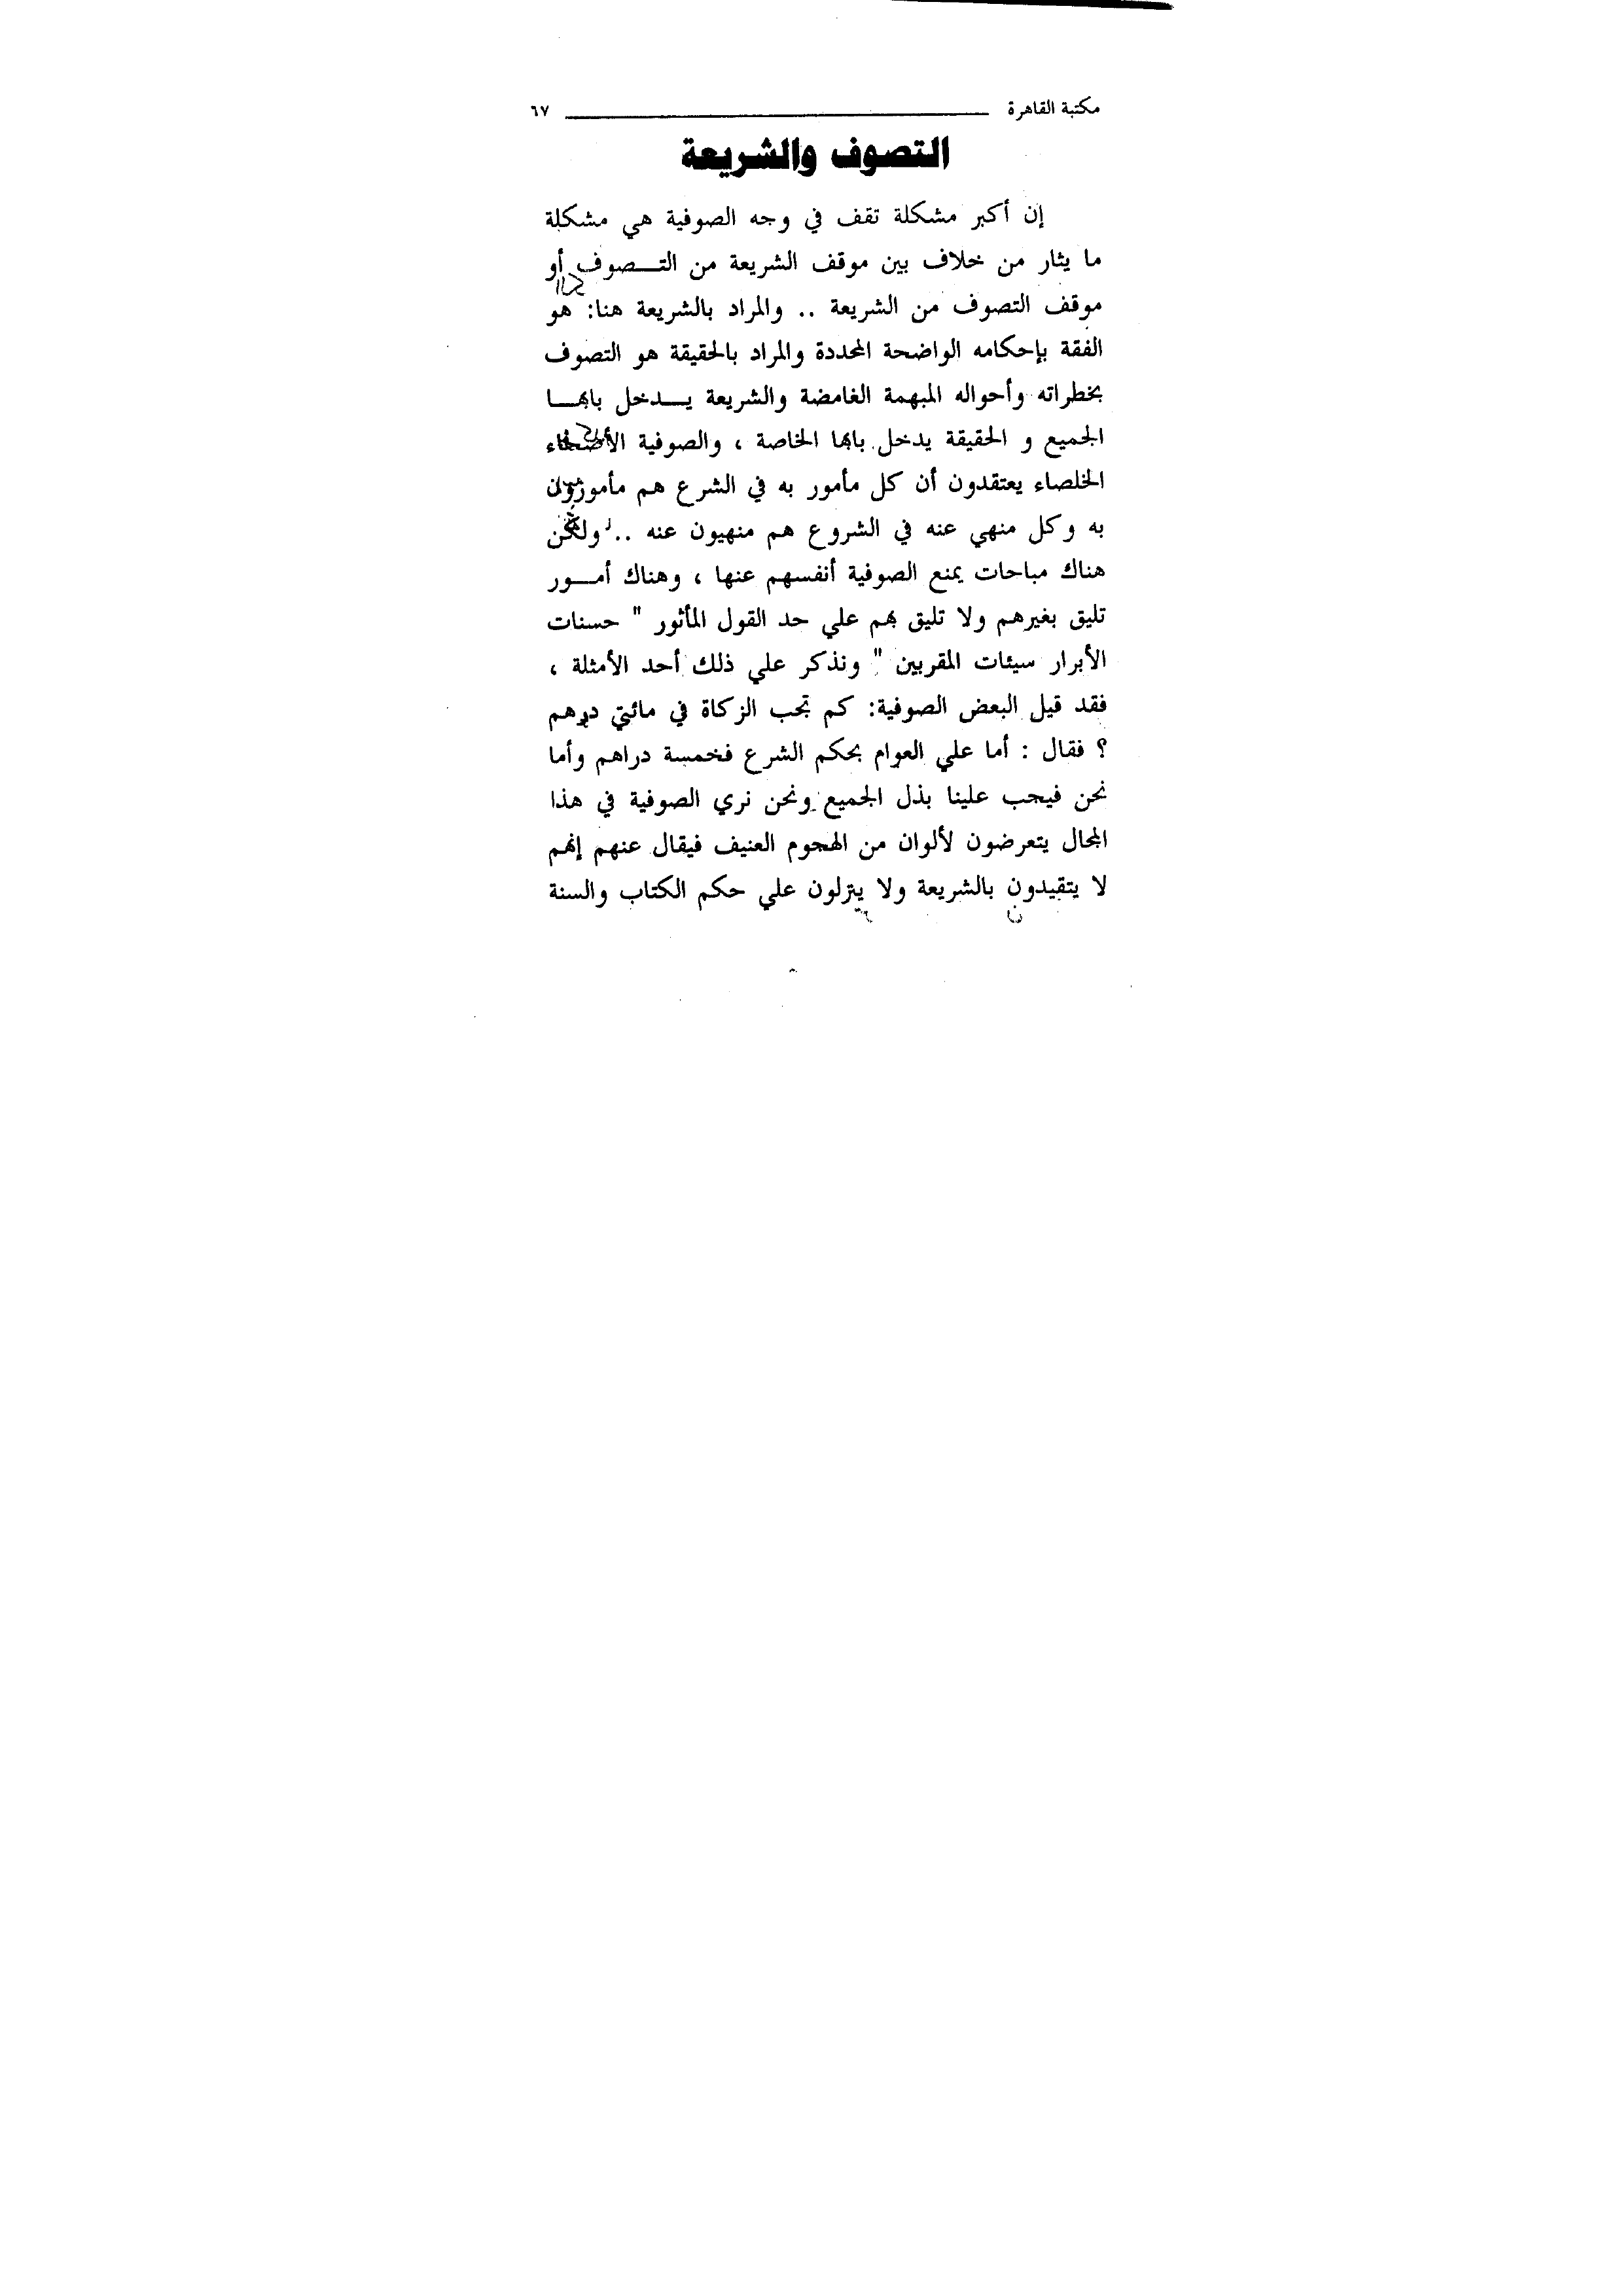 مكتبة القاهرة ٦٧
التصوف والشريعة
إن أكبر مشكلة تقف في وجه الصوفية هي مشكلة
ما يثار من خلاف بين موقف الشريعة من التـــصوف أو
موقف التصوف من الشريعة .. والمراد بالشريعة هنا: هو
الفقة بإحكامه الواضحة المحددة والمراد بالحقيقة هو التصوف
بخطراته وأحواله المبهمة الغامضة والشريعة يـــدخل بابهـــا
الجميع و الحقيقة يدخل بابها الخاصة ، والصوفية
الخلصاء يعتقدون أن كل مأمور به في الشرع هم مأمورون
به وكل منهي عنه في الشروع هم منهيون عنه .. ولكن
هناك مباحات يمنع الصوفية أنفسهم عنها ، وهناك أمـــور
تليق بغيرهم ولا تليق بهم علي حد القول المأثور " حسنات
الأبرار سيئات المقربين " ونذكر علي ذلك أحد الأمثلة ،
فقد قيل البعض الصوفية: كم تجب الزكاة في مائتي درهم
؟ فقال : أما علي العوام بحكم الشرع فخمسة دراهم وأما
نحن فيجب علينا بذل الجميع ونحن نري الصوفية في هذا
المجال يتعرضون لألوان من الهجوم العنيف فيقال عنهم إنهم
لا يتقيدون بالشريعة ولا ينزلون علي حكم الكتاب والسنة